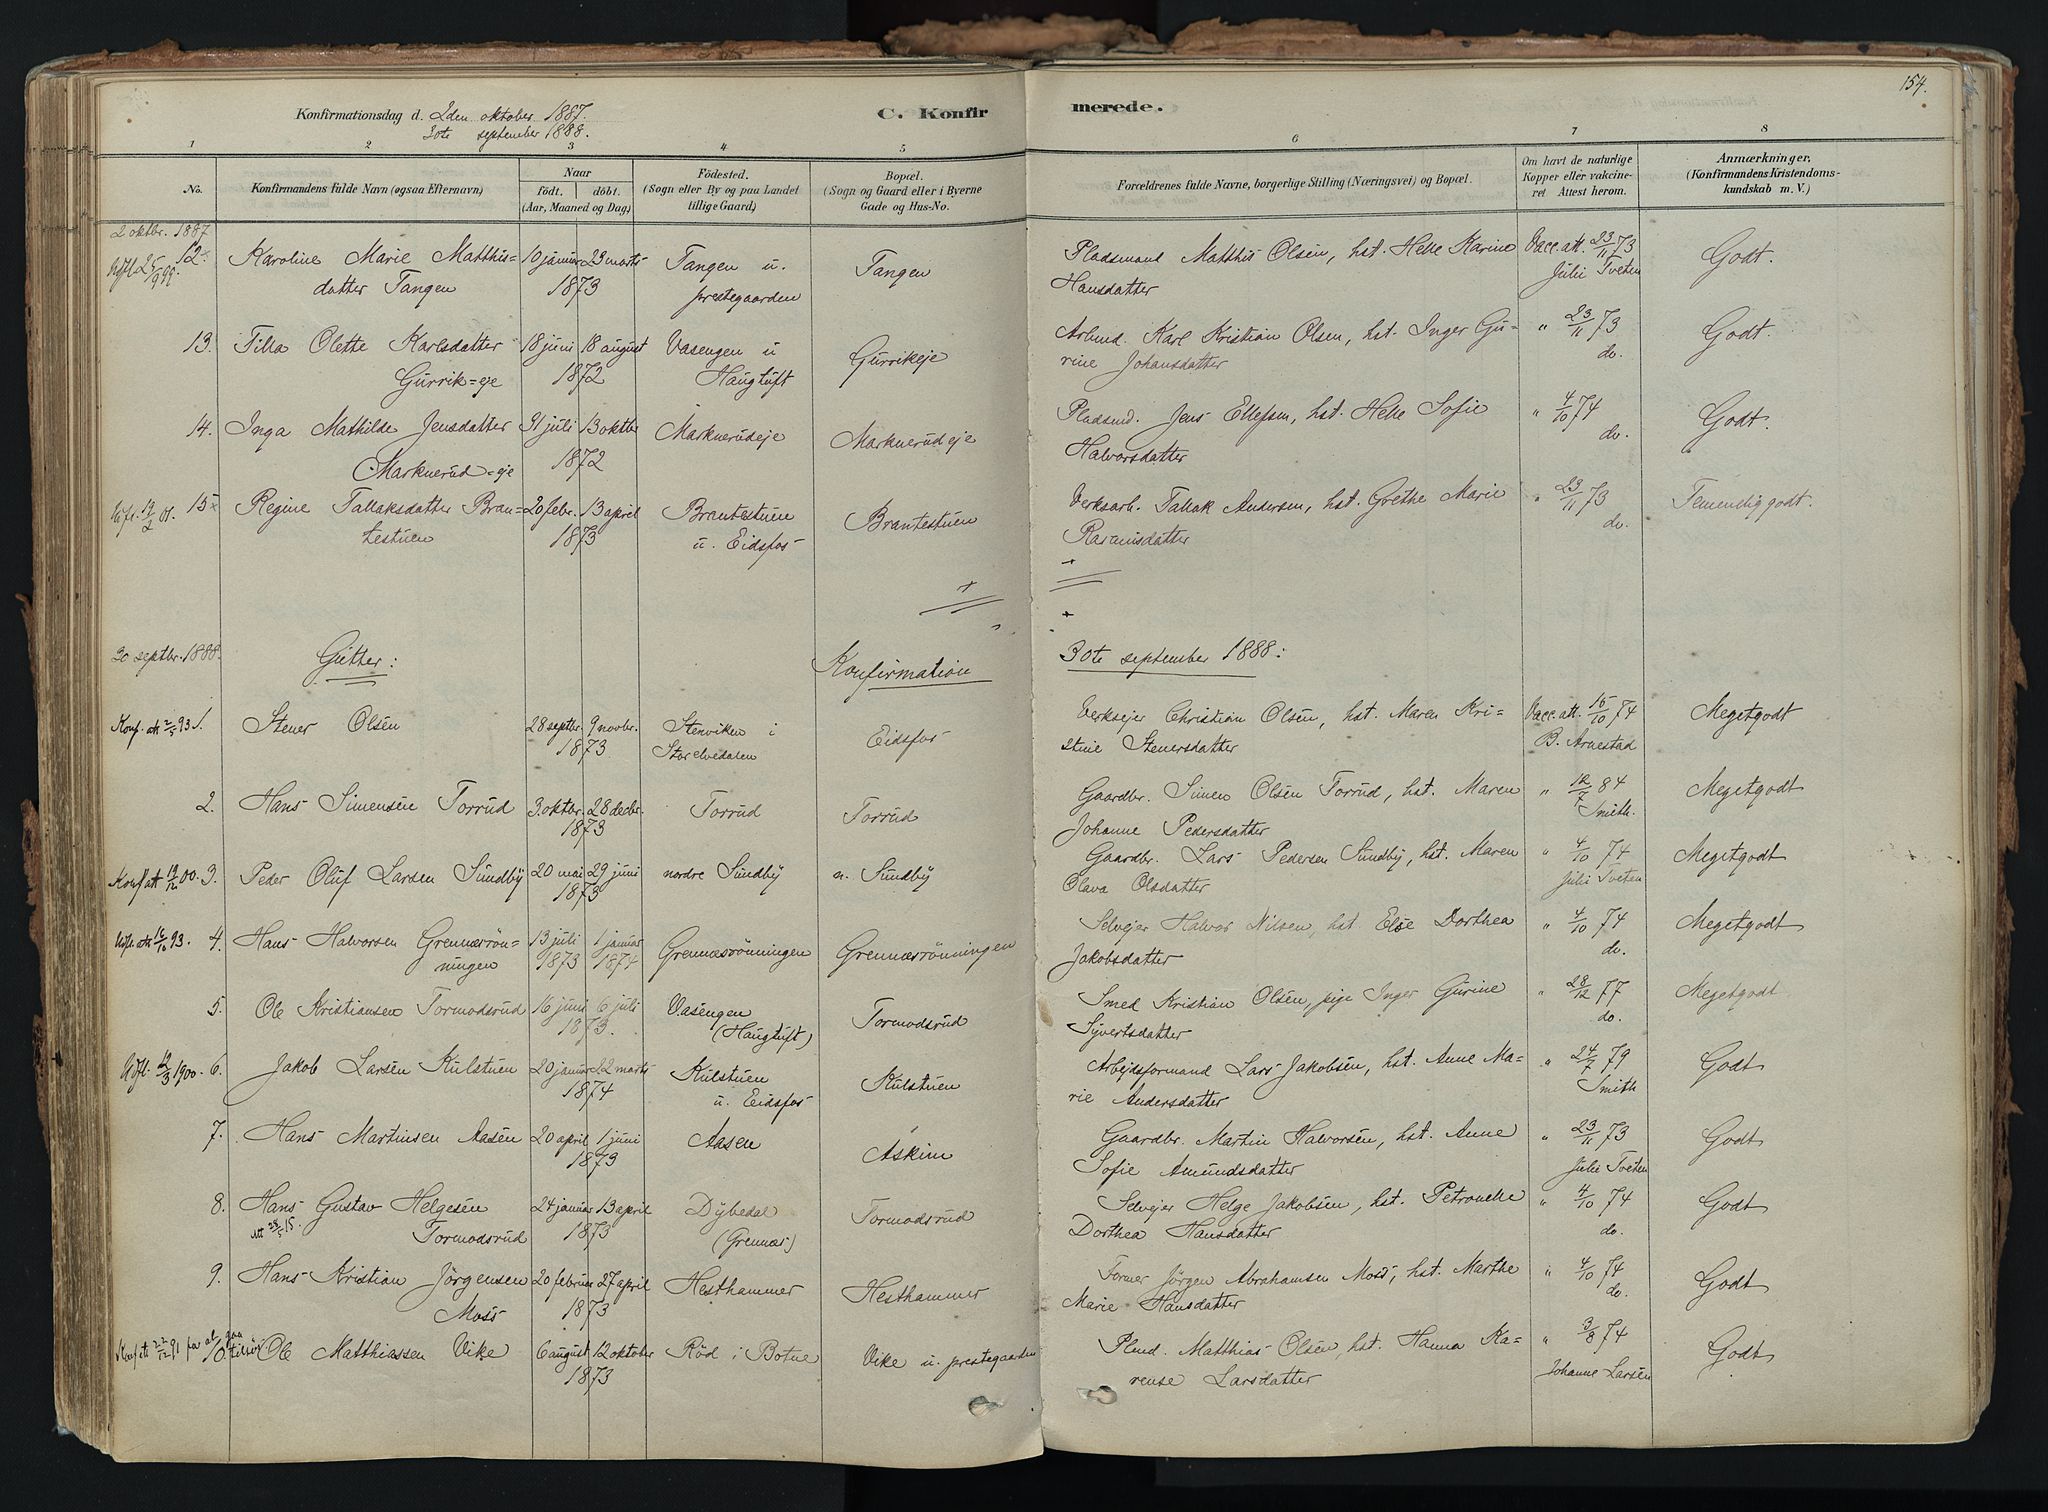 154.
Konfirmationsdag d. 2den oktober 1887.
30te september 1888.
C. Konfirmerede.
1 2 3 4 5 6 7 8
No.
Konfirmandens fulde Navn (ogsaa Efternavn)
Naar
födt. döbt.
(Aar, Maaned og Dag.)
Födested.
(Sogn eller By og paa Landet
tillige Gaard.)
Bopæl.
(Sogn og Gaard eller i Byerne
Gade og Hus-No.
Forældrenes fulde Navne, borgerlige Stilling (Næringsvei) og Bopæl.
Om havt de naturlige
Kopper eller vakcine-
ret Attest herom.
Anmærkninger,
(Konfirmandens Kristendoms-
kundskab m. V.)
2 oktbr. 1887
12. Karoline Marie Matthis- 10 januar 23 marts Tangen u. Tangen Pladsmand Matthis Olsen, hst. Helle Karine Vacc. att. 23/11 73 Godt.
datter Tangen 1873 prestegaarden Hansdatter Julie Tveten
13. Tilla Olette Karlsdatter 18 juni 18 august Vasengen u Gurrikeje Arbmd. Karl Kristian Olsen, hst. Inger Gu- " 23/11 73 Godt.
Gurrik=eje 1872 Haugtuft rine Johansdatter do.
14. Inga Mathilde Jensdatter 31 juli 13 oktbr Marknerudeje Marknerudeje Pladsmd. Jens Ellefsen, hst. Helle Sofie " 4/10 74 Godt.
Marknerud=eje 1872 Halvorsdatter do.
15 Regine Tallaksdatter Bran- 20 febr. 13 april Brantestuen Brantestuen Verksarb. Tallak Andersen, hst. Grethe Marie " 23/11 73 Temmelig godt.
testuen 1873 u. Eidsfos Rasmusdatter do.
30 septbr. 1888. Gutter: Konfirmation 30te september 1888:
Konf. att 2/5 93 1. Stener Olsen 28 septbr. 9 novbr. Stenviken i Eidsfos Verksejer Christian Olsen, hst. Maren Kri- Vacc. att. 15/10 74 Megetgodt
1873 Storelvedalen stine Stenersdatter B. Arnestad
2. Hans Simensen Torrud 3. oktbr. 28 decbr. Torrud Torrud Gaardbr. Simen Olsen Torrud, hst. Maren " 12/7 84 Megetgodt
1873 Johanne Pedersdatter Smith.
Konf att 19/12 00. 3. Peder Oluf Larsen Sundby 20 mai 29 juni nordre Sundby n. Sundby Gaardbr. Lars Pedersen Sundby, hst. Maren " 4/10 74 Megetgodt
1873 Olava Olsdatter Julie Tveten
att 16/10 93. 4. Hans Halvorsen Grennesrön- 13 juli 1 januar Grennesrönningen Grennesrönningen Selvejer Halvor Nilsen, hst. Else Dorthea " 4/10 74 Megetgodt
ningen 1873 1874 Jakobsdatter do.
5. Ole Kristiansen Tormodsrud 16 juni 6 juli Vasengen Tormodsrud Smed Kristian Olsen, pige Inger Gurine " 28/12 77 Megetgodt
1873. (Haugtuft) Syvertsdatter do.
1900. 6. Jakob Larsen Kulstuen 20 januar 22 marts Kulstuen Kulstuen Arbejdsformand Lars Jakobsen, hst. Anne Ma- " 24/7 79 Godt
1874 u. Eidsfos rie Andersdatter Smith
7. Hans Martinsen Aasen 20 april 1 juni Aasen Askim Gaardbr. Martin Halvorsen, hst. Anne " 23/11 73 Godt
1873 Sofie Amundsdatter Julie Tveten
8. Hans Gustav Helgesen 24 januar 13 april Dybedal Tormodsrud Selvejer Helge Jakobsen, hst. Petronelle " 4/10 74 Godt
Att 28/5 15. Tormodsrud 1873 (Grennes) Dorthea Hansdatter do.
9. Hans Kristian Jörgensen 20 februar 27 april Hesthammer Hesthammer Former Jörgen Abrahamsen Moss, hst. Marthe " 4/10 74 Godt
Moss 1873 Marie Hansdatter do.
10. Ole Matthiassen Vike 6 august 12 oktober Röd i Botne Vike u. prestegaarden Plmd. Matthias Olsen, hst. Hanna Ka- " 3/8 74 Godt
1873 rense Larsdatter Johanne Larsen